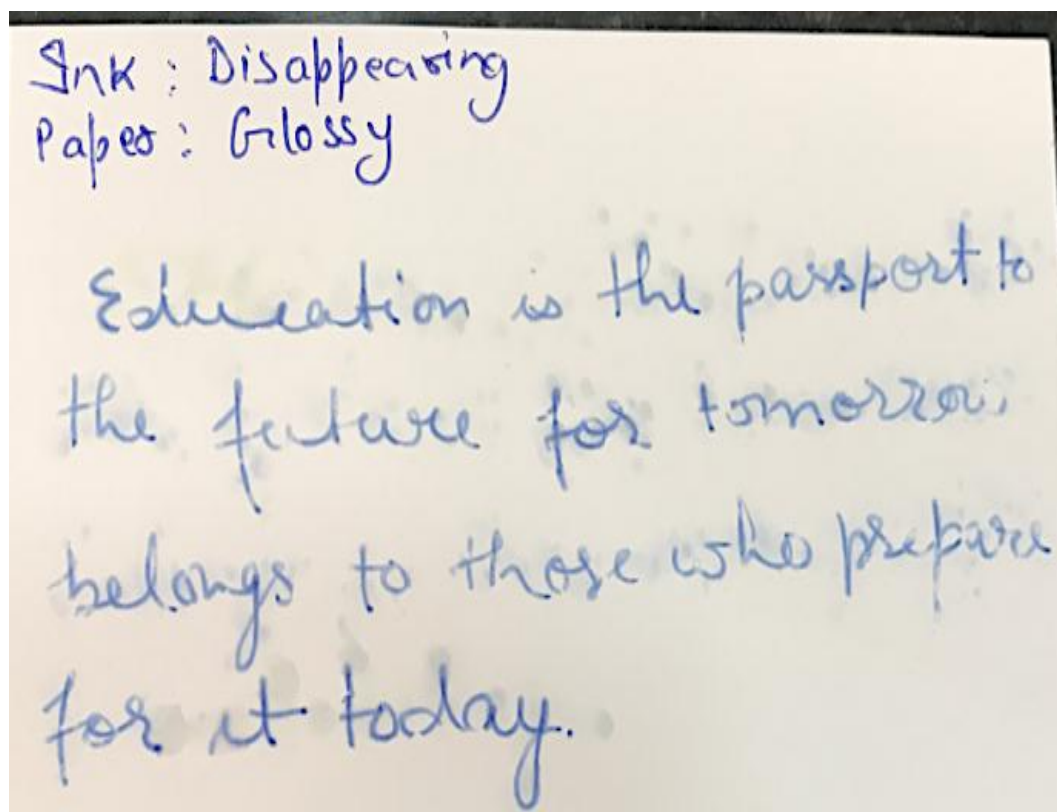 Ink : Disappearing
Paper : Glossy
Education is the passport to
the future for tomorrow
belongs to those who prepare
for it today.